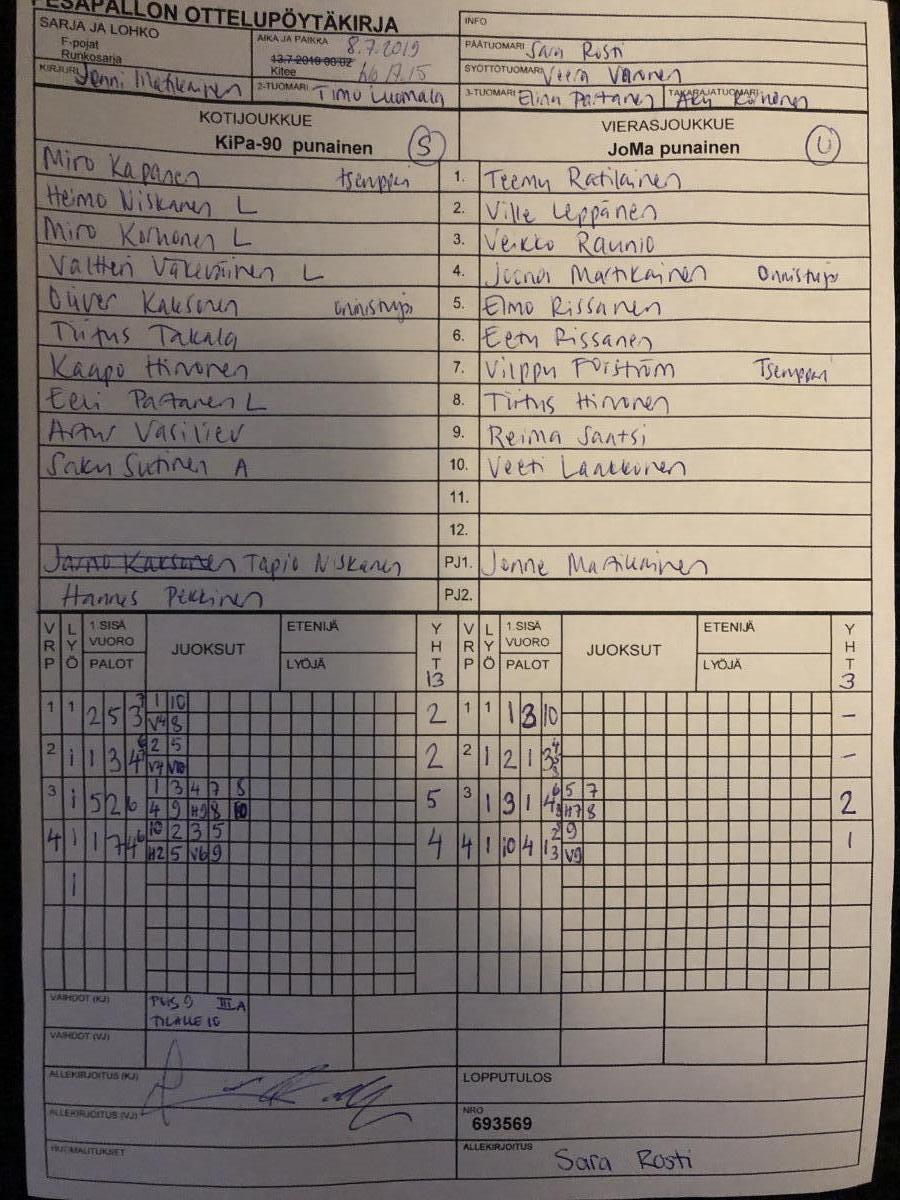 PESÄPALLON OTTELUPÖYTÄKIRJA
SARJA JA LOHKO
F-pojat
Runkosarja
AIKA JA PAIKKA 8.7.2019
13.7.2019 00:02
Kitee klo 17.15
INFO
PÄÄTUOMARI Sara Rosti
SYÖTTÖTUOMARI Veera Varonen
KIRJURI Jenni Matikainen
2-TUOMARI Timo Luomala
3-TUOMARI Elina Partanen
TAKARAJATUOMARI Aku
KOTIJOUKKUE
KiPa-90 punainen S
VIERASJOUKKUE
JoMa punainen U
Miro Kapanen tsemppari 1. Teemu Ratilainen
Heimo Niskanen L 2. Ville Leppänen
Miro Korhonen L 3. Veikko Raunio
Valtteri Väkeväinen L 4. Joona Martikainen Onnistuja
Oliver Kaksonen onnistuja 5. Elmo Rissanen
Tiitus Takala 6. Eetu Rissanen
Kaapo Hirvonen 7. Vilppu Forström Tsemppari
Eeli Partanen L 8. Tiitus Hirvonen
Artur Vasiliev 9. Reima Santsi
Saku Sutinen A 10. Veeti Laakkonen
11.
12.
Jarno Kaksonen Tapio Niskanen PJ1. Jonne Martikainen
Hannes Pekkinen PJ2.
VRP LYÖ 1.SISÄ VUORO PALOT JUOKSUT ETENIJÄ LYÖJÄ YHT 13
VRP LYÖ 1.SISÄ VUORO PALOT JUOKSUT ETENIJÄ LYÖJÄ YHT 3
1 1 2 5 3 7 1 10 2 1 1 1 3 10 –
V4 8
2 1 1 3 4 2 5 2 2 1 2 1 3 –
V7 V10
3 1 5 2 6 1 3 4 7 8 5 3 1 9 1 4 6 5 7 2
4 9 H9 8 10 H7 8
4 1 1 7 4 6 10 2 3 5 4 4 1 10 4 1 2 9 1
H2 5 V6 9 3 V9
1
VAIHDOT (KJ) POIS 9 III A
TILALLE 10
VAIHDOT (VJ)
ALLEKIRJOITUS (KJ)
LOPPUTULOS
ALLEKIRJOITUS (VJ)
NRO
693569
HUOMAUTUKSET
ALLEKIRJOITUS Sara Rosti